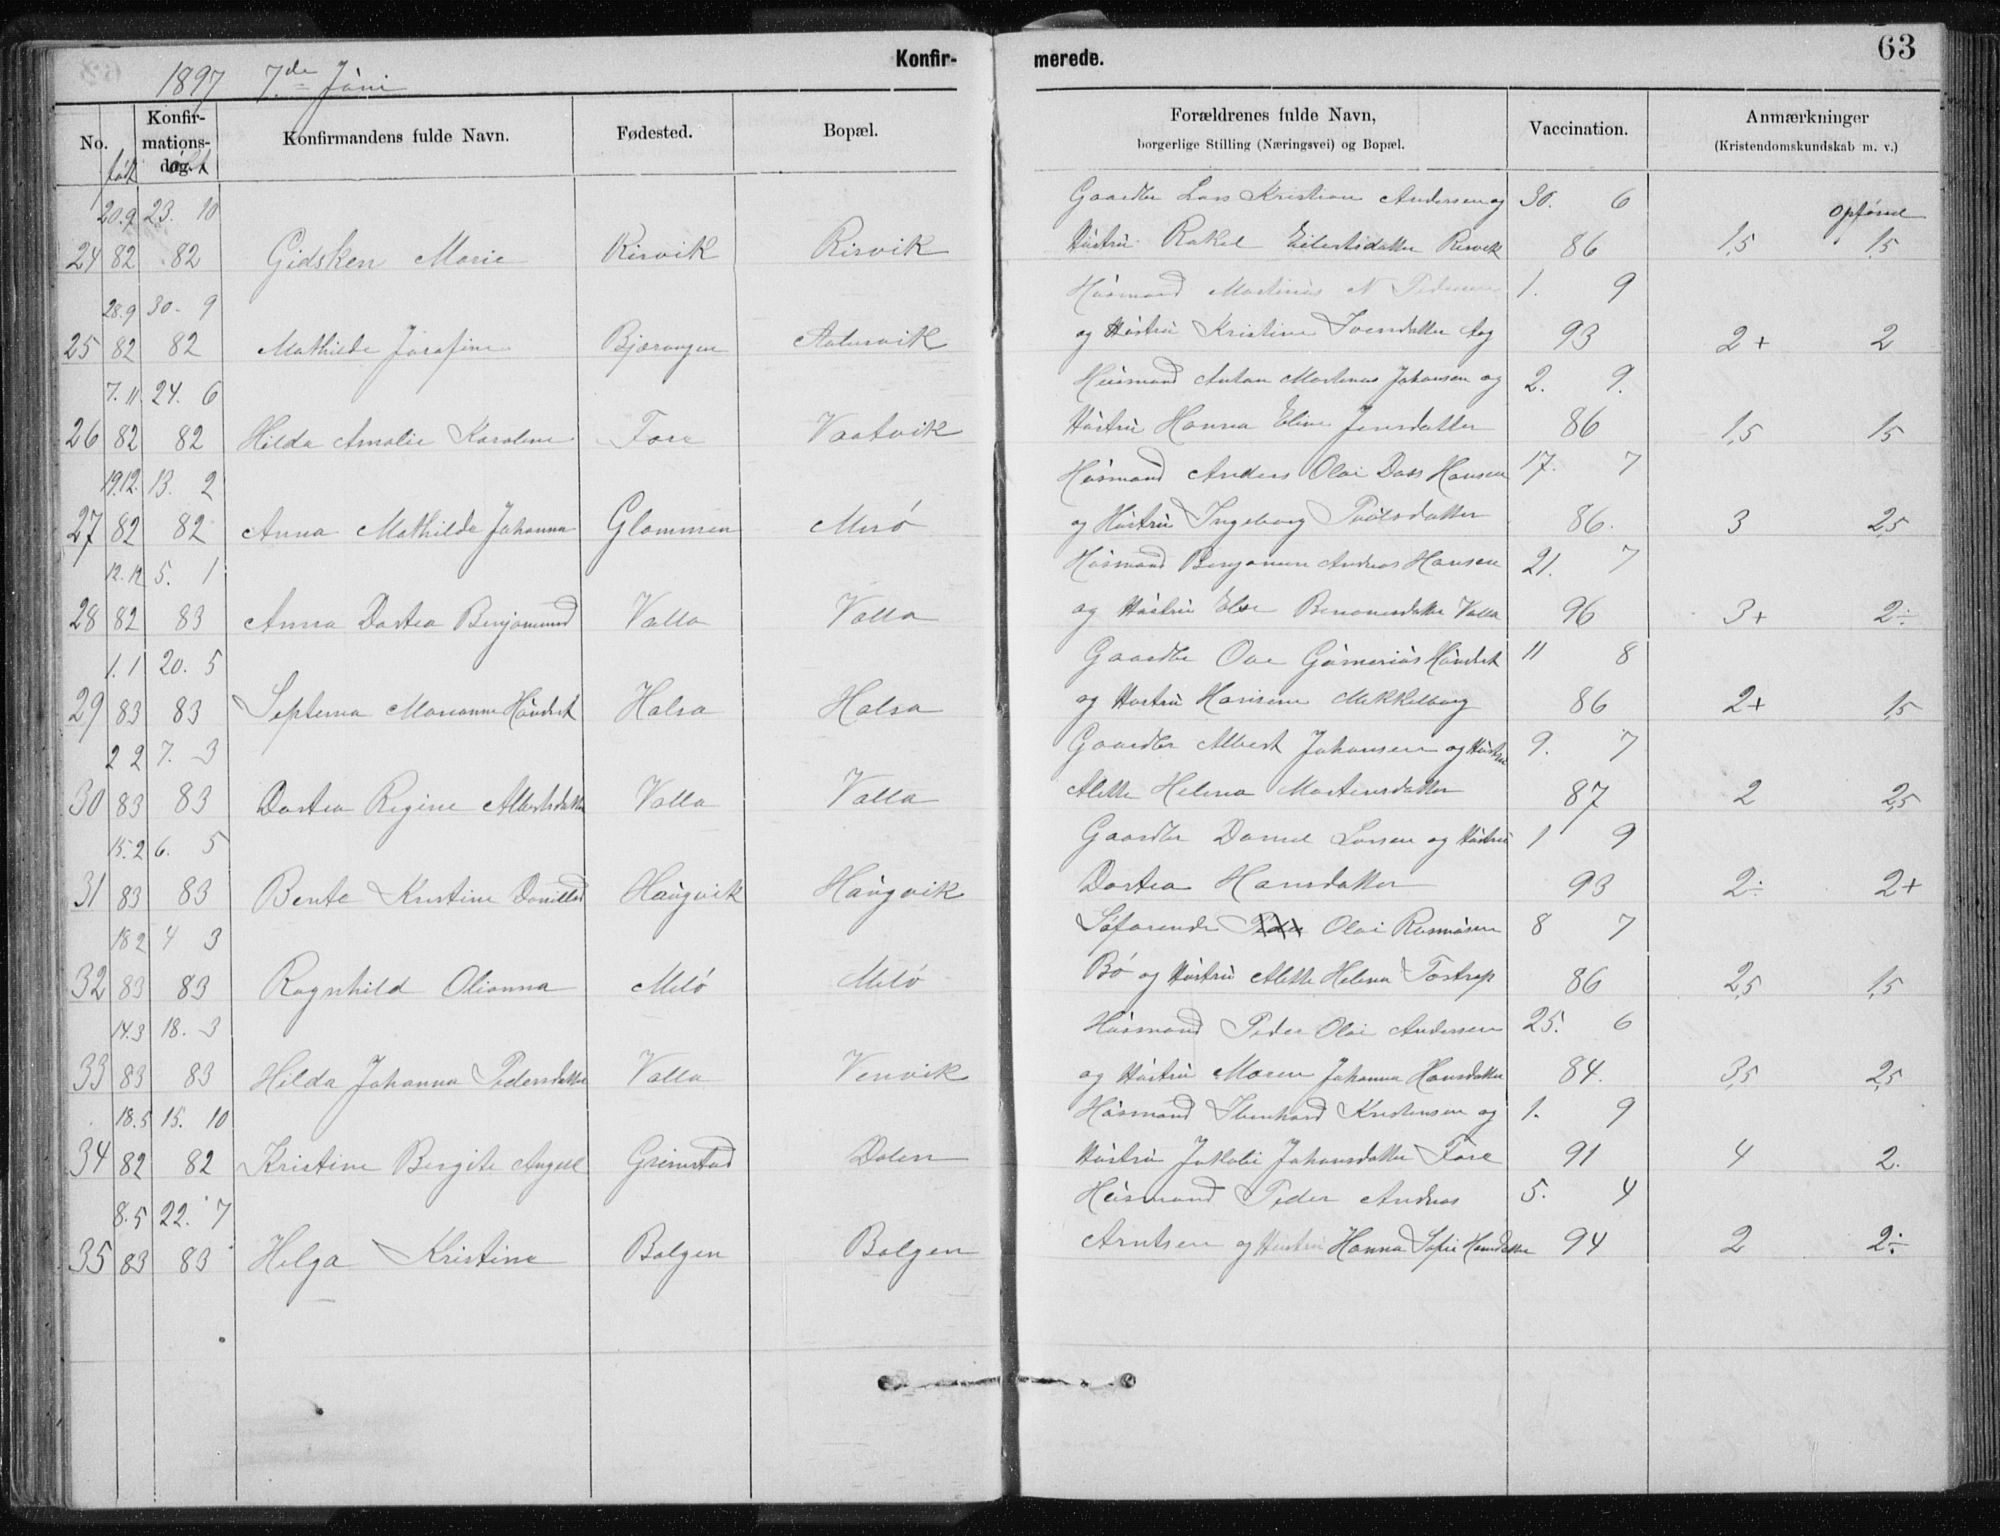 Konfir-
merede.
63
1897 7.de Juni
No.
født
Konfir-
mations-
dag.
døbt
Konfirmandens fulde Navn.
Fødested.
Bopæl.
Forældrenes fulde Navn,
borgerlige Stilling (Næringsvei) og Bopæl.
Vaccination.
Anmærkninger
(Kristendomskundskab m. v.)
20.9 23. 10 Gaardbr Lars Kristian Andersen og 30. 6 Opførsel
24 82 82 Gidsken Marie Risvik Risvik Hustru Rakel Eilertsdatter Risvik 86 1,5 1,5
28.9 30. 9 Husmand Martinus N Pedersen 1. 9
25 82 82 Mathilde Josefine Bjærangen og Hustru Kristine Svensdatter Aag 93 2+ 2
7.11 24. 6 Husmand Anton Martenas Johansen og 2. 9.
26 82 82 Hilda Amalie Karoline Fore Vaatvik Hustru Hanna Eline Jensdatter 86 1,5 1,5
19.12. 13. 2 Husmand Anders Olai Dass Hansen 17. 7
27 82 82 Anna Mathilda Johanna Glommen Melø og Hustru Ingeborg Poulsdatter 86. 3 2,5
12.12 5. 1 Husmand Benjamin Andreas Hansen 21. 7
28 82 83 Anna Dortea Benjaminsd Valla Valla og Hustru Else Benonisdatter Valla 96 3+ 2÷
1.1 20. 5 Gaardbr Ove Gusmerius Hundset 11 8
29 83 83 Septema Marianne Hundset Halsa Halsa og Hustru Hansine Mekkelborg 86 2+ 1,5
2 2 7. 3 Gaardbr Albert Johansen og Hustru 9. 7
30 83 83 Dortea Regine Albertsdatter Valla Valla Alette Helena Martinsdatter 87 2 2,5
15.2 6. 5 Gaardbr Daniel Larsen og Hustru 1 9
31 83 83 Bente Kristine Danielsd Haugvik Haugvik Dortea Hansdatter 93 2÷ 2+
18 2 4 3 Søfarende Peder Olai Rasmusen 8 7
32 83 83 Ragnhild Olianna Melø Melø Bø og Hustru Alette Helena Tostrup 86 2,5 1,5
14.3 18. 3 Husmand Peder Olai Andersen 25. 6
33 83 83 Hilda Johanna Pedersdatter Valla Venvik og Hustru Maren Johanna Hansdatter 84. 3,5 2,5
18.5 15. 10 Husmand Iberhard Kristensen og 1. 9
34 82 82 Kristine Bergite Angell Grimstad Dalen Hustru Jakobi Johansdatter Fore 91 4 2.
8.5 22. 7 Husmand Peder Andreas 5. 4
35 83 83 Helga Kristine Bolgen Bolgen Arntsen og Hustru Hanna Sofie Hansdatter 94 2 2÷